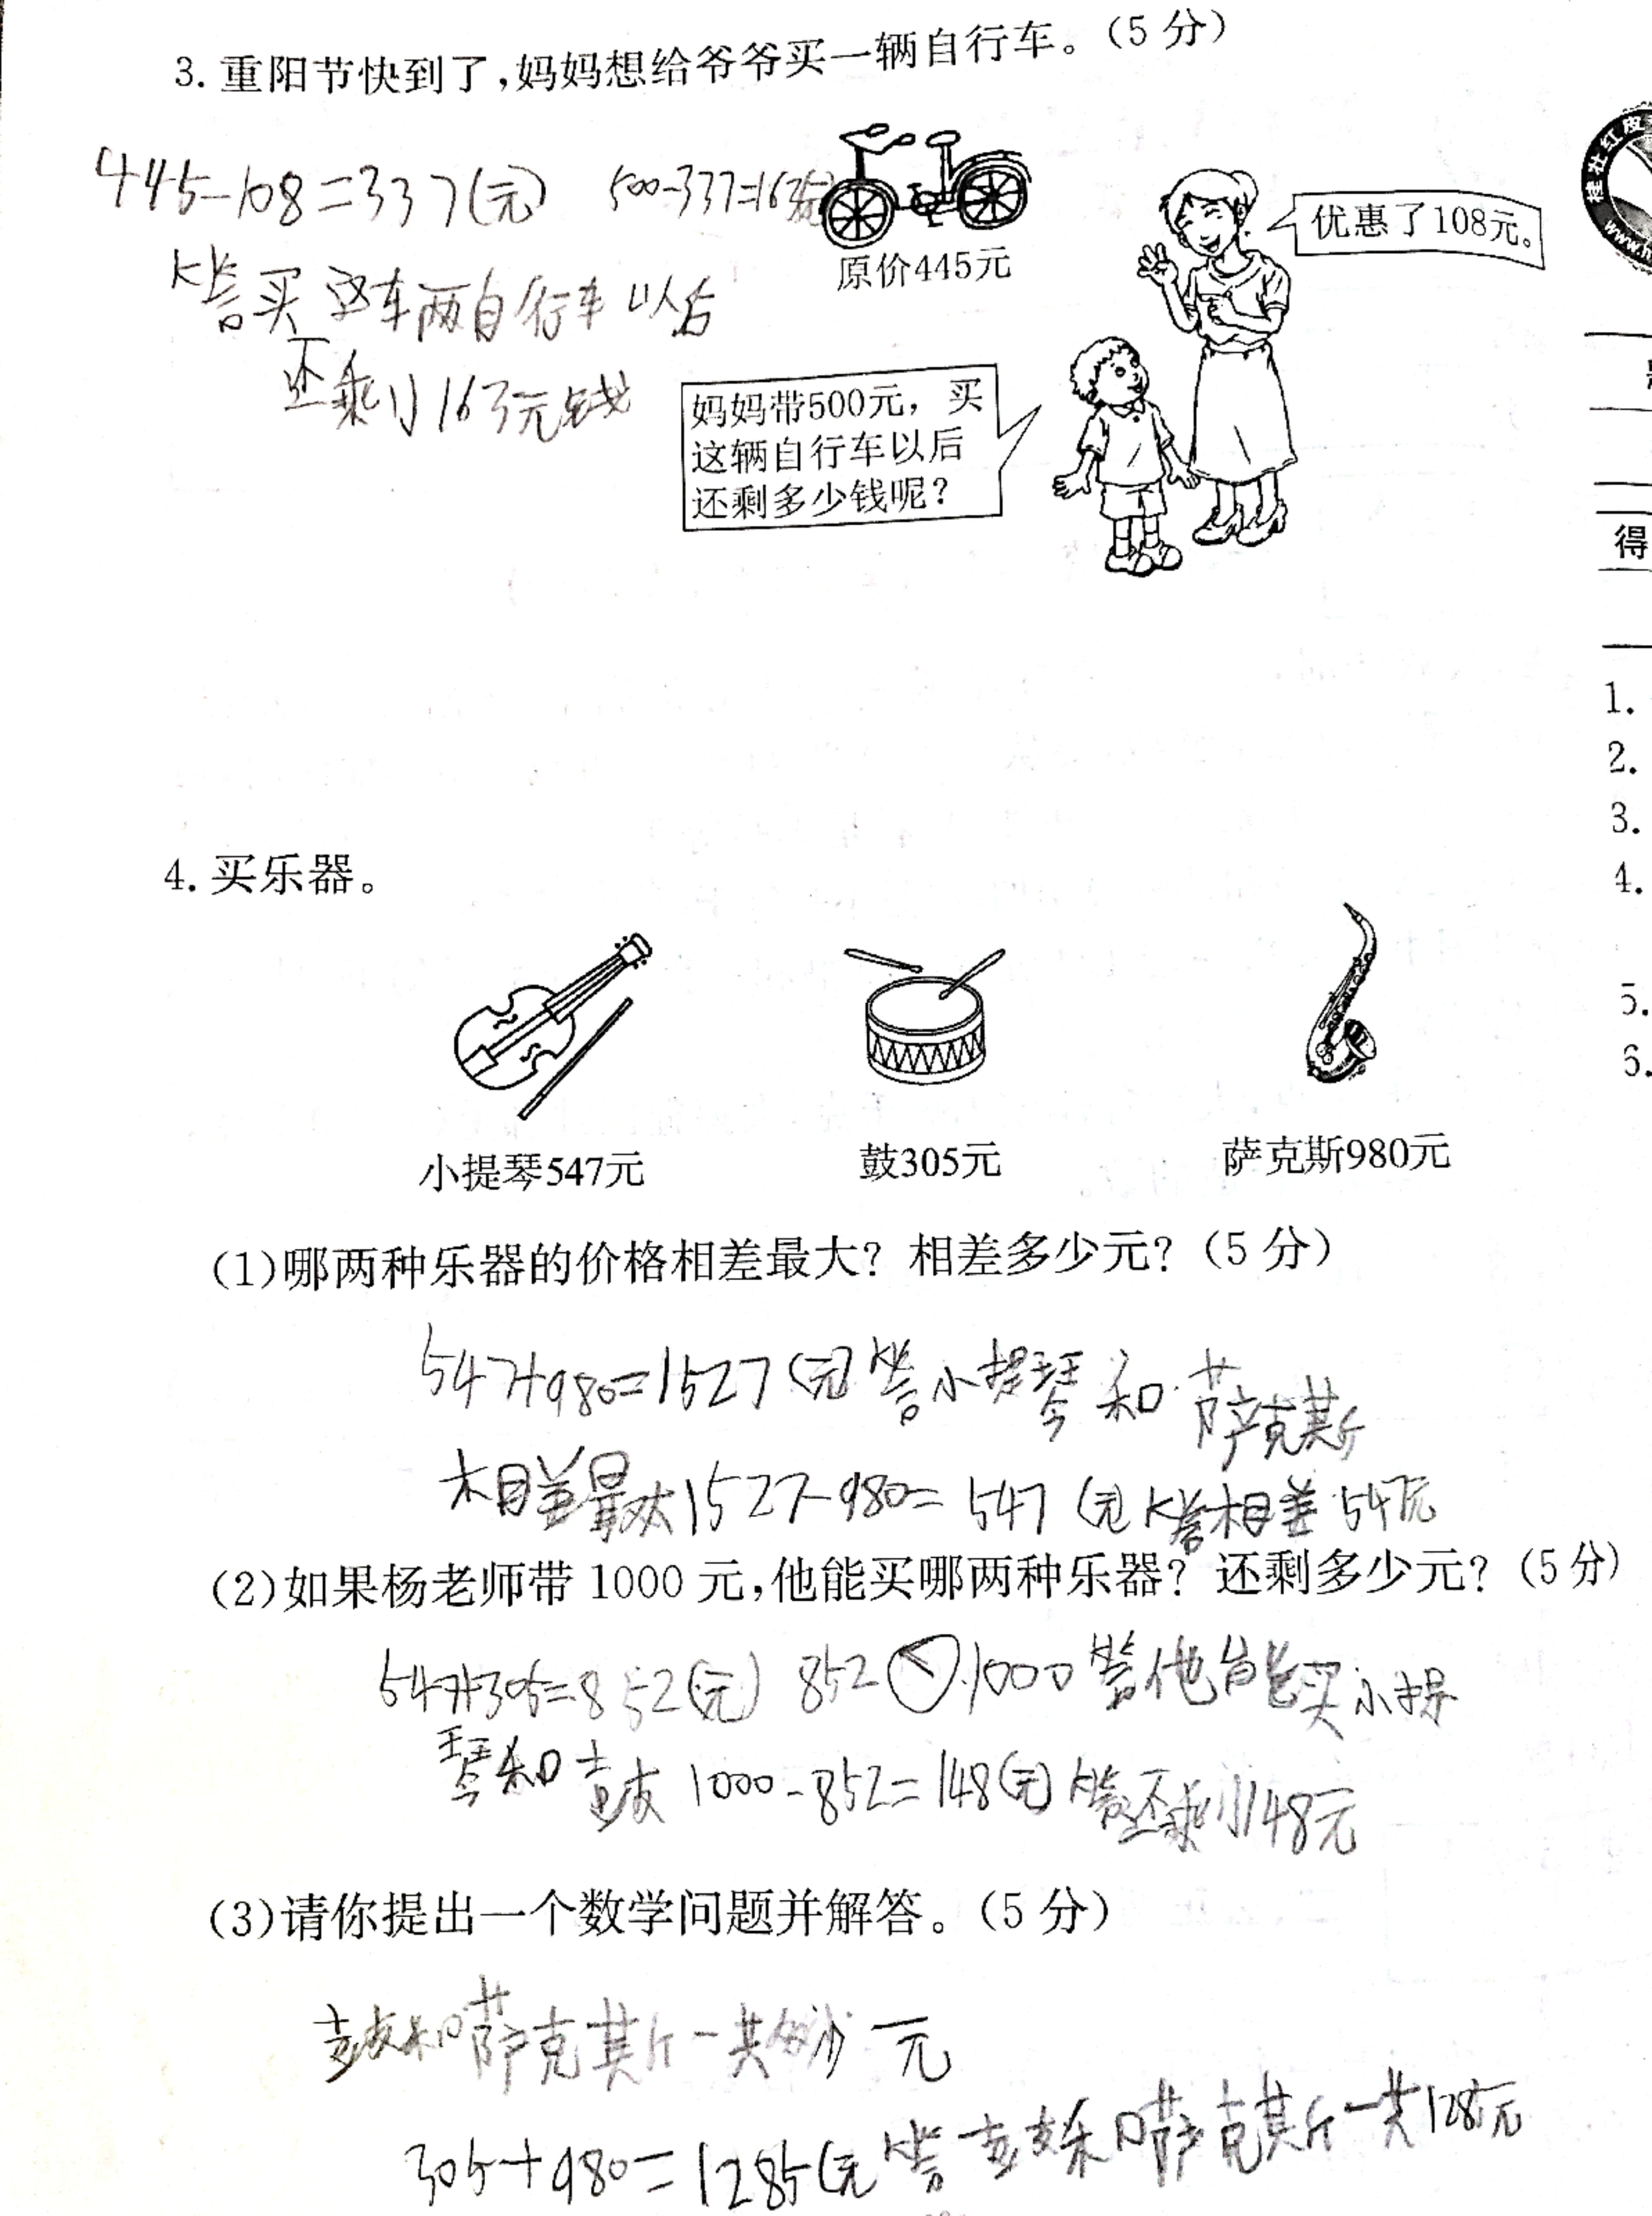 3. 重阳节快到了,妈妈想给爷爷买一辆自行车。(5 分)
445-108=337(元) 500-337=163(元)
原价445元
优惠了108元。
答买这车两自行车以后
还乘刂163元钱
妈妈带500元，买
这辆自行车以后
还剩多少钱呢？
得
1.
2.
3.
4.
5.
6.
4. 买乐器。
小提琴547元 鼓305元 萨克斯980元
(1)哪两种乐器的价格相差最大？相差多少元？(5 分)
547+980=1527(元)答小提琴和萨克斯
相差最大1527-980=547(元)答相差547元
(2)如果杨老师带 1000 元,他能买哪两种乐器？还剩多少元？(5 分)
547+305=852(元) 852<1000 答他能买小提
琴和鼓 1000-852=148(元)答还剩148元
(3)请你提出一个数学问题并解答。(5 分)
鼓和萨克斯一共多少元
305+980=1285(元 答鼓和萨克斯一共1285元